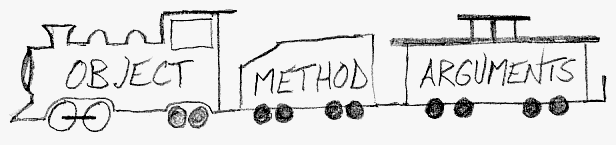 OBJECT METHOD ARGUMENTS